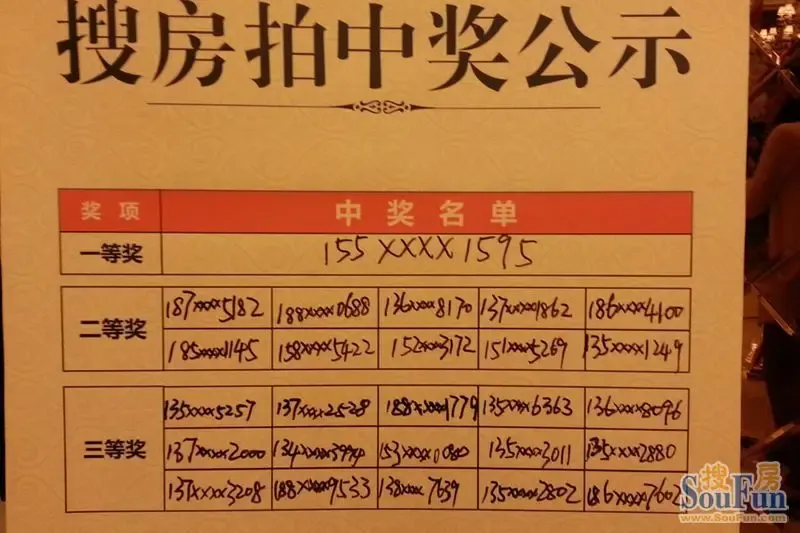 搜房拍中奖公示
奖项 中奖名单
一等奖 155XXXX1595
二等奖
187xxxx5182 188xxxx0688 136xxxx8170 137xxxx9862 186xxxx4100
185xxxx1145 158xxxx5422 152xxxx3172 151xxxx5269 135xxxx1249
三等奖
135xxxx5257 137xxxx2528 188xxxx1779 135xxxx6363 136xxxx8096
137xxxx2000 134xxxx3994 153xxxx0080 135xxxx3011 135xxxx2880
137xxxx3208 188xxxx9533 138xxxx7639 135xxxx2802 186xxxx7602
搜房
SouFun
www.SouFun.com